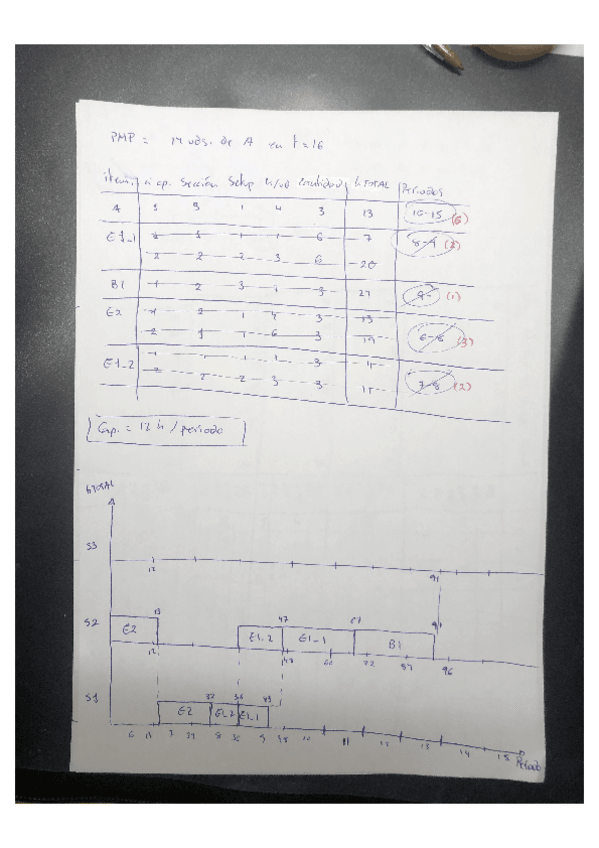 PMP = uds. de A en t=16
item n op. Sección Setup h/ud cantidad h TOTAL Periodos
A 1 3 1 4 3 13 10-15 (6)
E1_1 1 1 1 1 6 7 8-9 (2)
2 2 2 3 6 20
B1 1 2 3 3 27 9- (1)
E2 1 2 1 4 3 13
2 1 1 6 3 19 6-8 (3)
E1_2 1 1 1 1 3 4
2 2 2 3 3 11 7-8 (2)
Cap. = 12 h / periodo
h TOTAL
S3
12 91
13 47 67 91
S2 E2 E1_2 E1_1 B1
12 48 60 72 84 96
32 36 43
S1 E2 E1_2 E1_1
6 12 7 24 8 36 9 48 10 11 12 13 14 15 Periodo